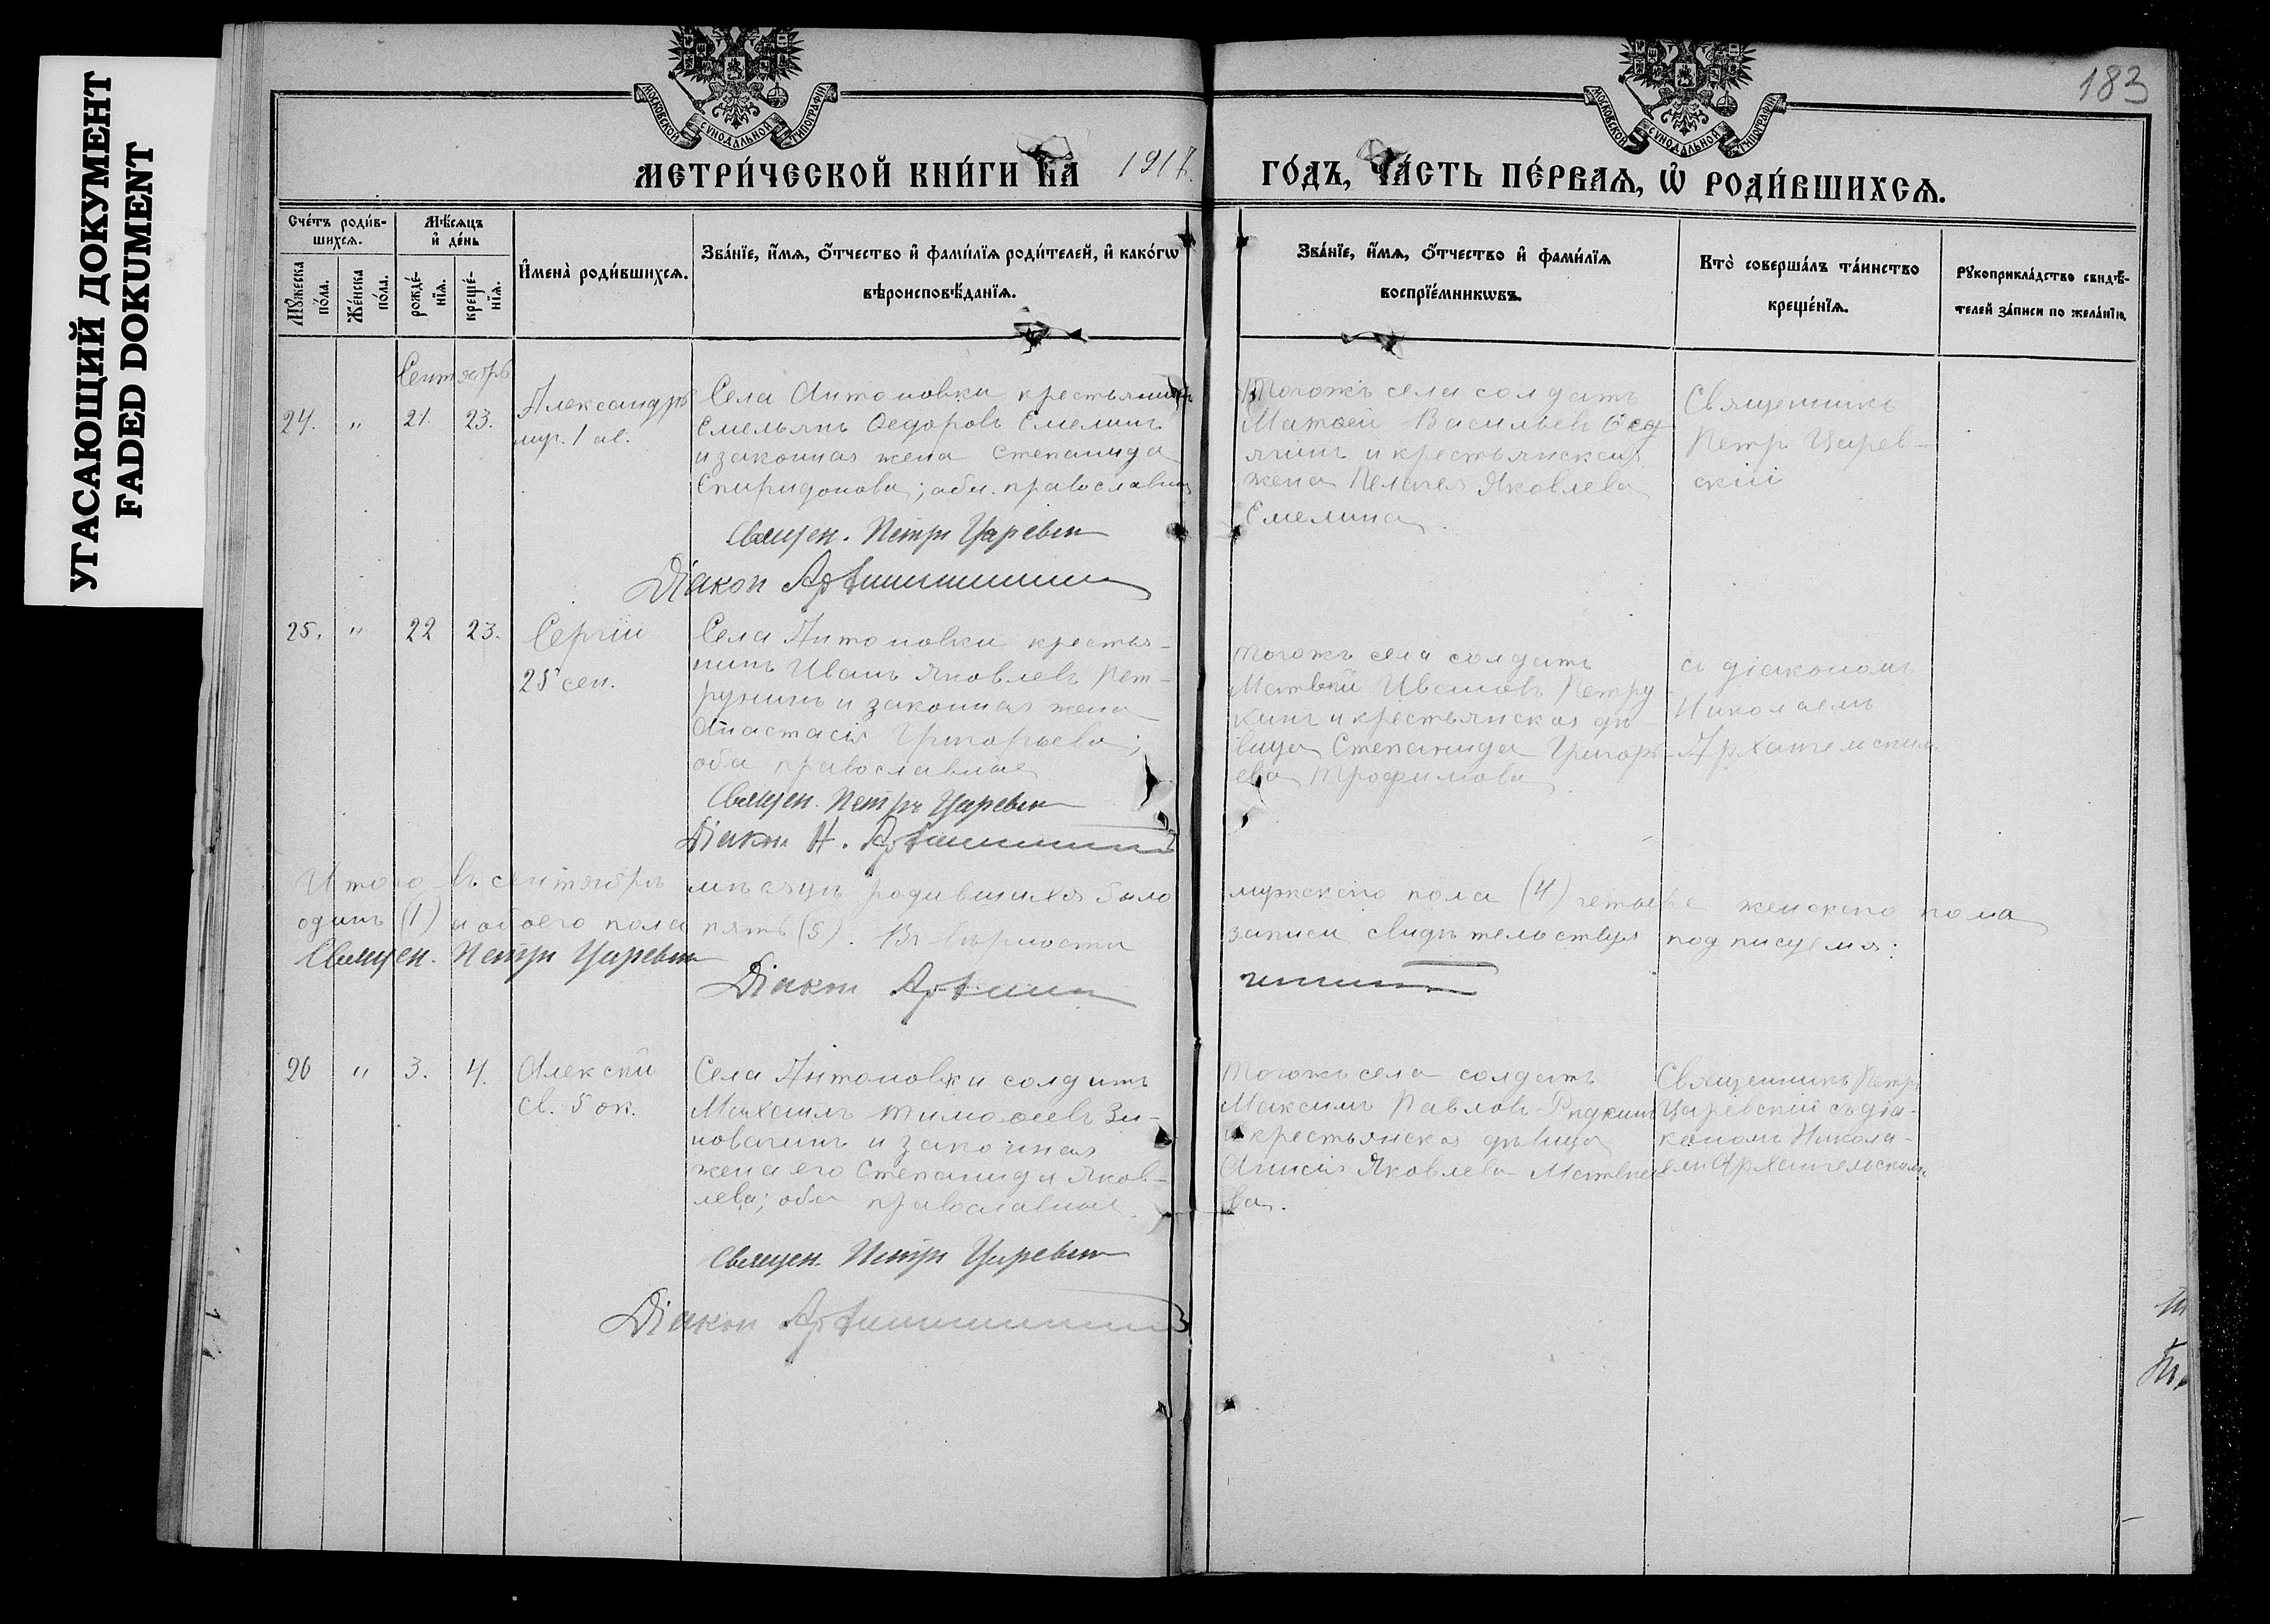 УГАСАЮЩИЙ ДОКУМЕНТ
FADED DOKUMENT
МОСКОВСКОЙ СѴНОДАЛЬНОЙ ТИПОГРАФІИ
МОСКОВСКОЙ СѴНОДАЛЬНОЙ ТИПОГРАФІИ
183
МЕТРИ́ЧЕСКОЙ КНИ́ГИ НА 1917.
ГО́ДЪ, ЧА́СТЬ ПЕ́РВАѦ, Ѡ҆ РОДИ́ВШИХСѦ.
Сче́тъ роди́в-
шихсѧ.
Мꙋ́жеска
по́ла.
Же́нска
по́ла.
Мѣ́сѧцъ
и҆ де́нь
рожде́-
нїѧ.
креще́-
нїѧ.
И҆мена̀ роди́вшихсѧ.
Зва́нїе, и҆́мѧ, ѻ҆́тчество и҆ фами́лїѧ роди́телей, и҆ како́гѡ
вѣроисповѣ́данїѧ.
Зва́нїе, и҆́мѧ, ѻ҆́тчество и҆ фами́лїѧ
воспрїе́мникѡвъ.
Кто̀ соверша́лъ та́инство
креще́нїѧ.
Рꙋкоприкла́дство свидѣ́-
телей за́писи по жела́нїю.
Сентябрь
24. " 21. 23.
Александръ
муч. 1 ав.
Села Антоновки крестьянинъ
Емельянъ Ѳедоровъ Емелинъ
и законная жена Степанида
Спиридонова; оба православны
Священ. Петръ Царевск
Діакон Архангельскій
Тогожъ села солдатъ
Матѳей Васильевъ
и крестьянская
жена Пелагея Яковлева
Емелина.
Священникъ
Петръ Царев-
скій
25. " 22 23.
Сергій
25 сен.
Села Антоновки крестья-
нинъ Иванъ Яковлевъ Пет-
рунинъ и законная жена
Анастасія Григорьева;
оба православные
Священ. Петръ Царевск
Діакон Н. Архангельскій
Тогожъ села солдатъ
Матвѣй Ивановъ Петру
кинъ и крестьянская дѣ-
вица Степанида Григорь-
ева Трофимова
съ діакономъ
Николаемъ
Архангельским
Итого въ сентябрѣ мѣсяцѣ родившихся было мужского пола (4) четыре женского пола
одинъ (1) и обоего пола пять (5). Въ вѣрности записи свидѣтельствуя подписуемся:
Священ. Петръ Царевск
Діакон Архангель
скій
26 " 3. 4.
Алексій
св. 5 ок.
Села Антоновки солдатъ
Михаилъ Тимоѳеевъ Зи-
новкинъ и законная
жена его Степанида Яков-
лева; оба православные.
Священ. Петръ Царевск
Діакон Архангельскій
Тогожъ села солдатъ
Максимъ Павловъ Рядкинъ
и крестьянская дѣвица
Анисія Яковлева Матвѣе
ва.
Священникъ Петръ
Царевскій съ діа-
кономъ Никола-
емъ Архангельским